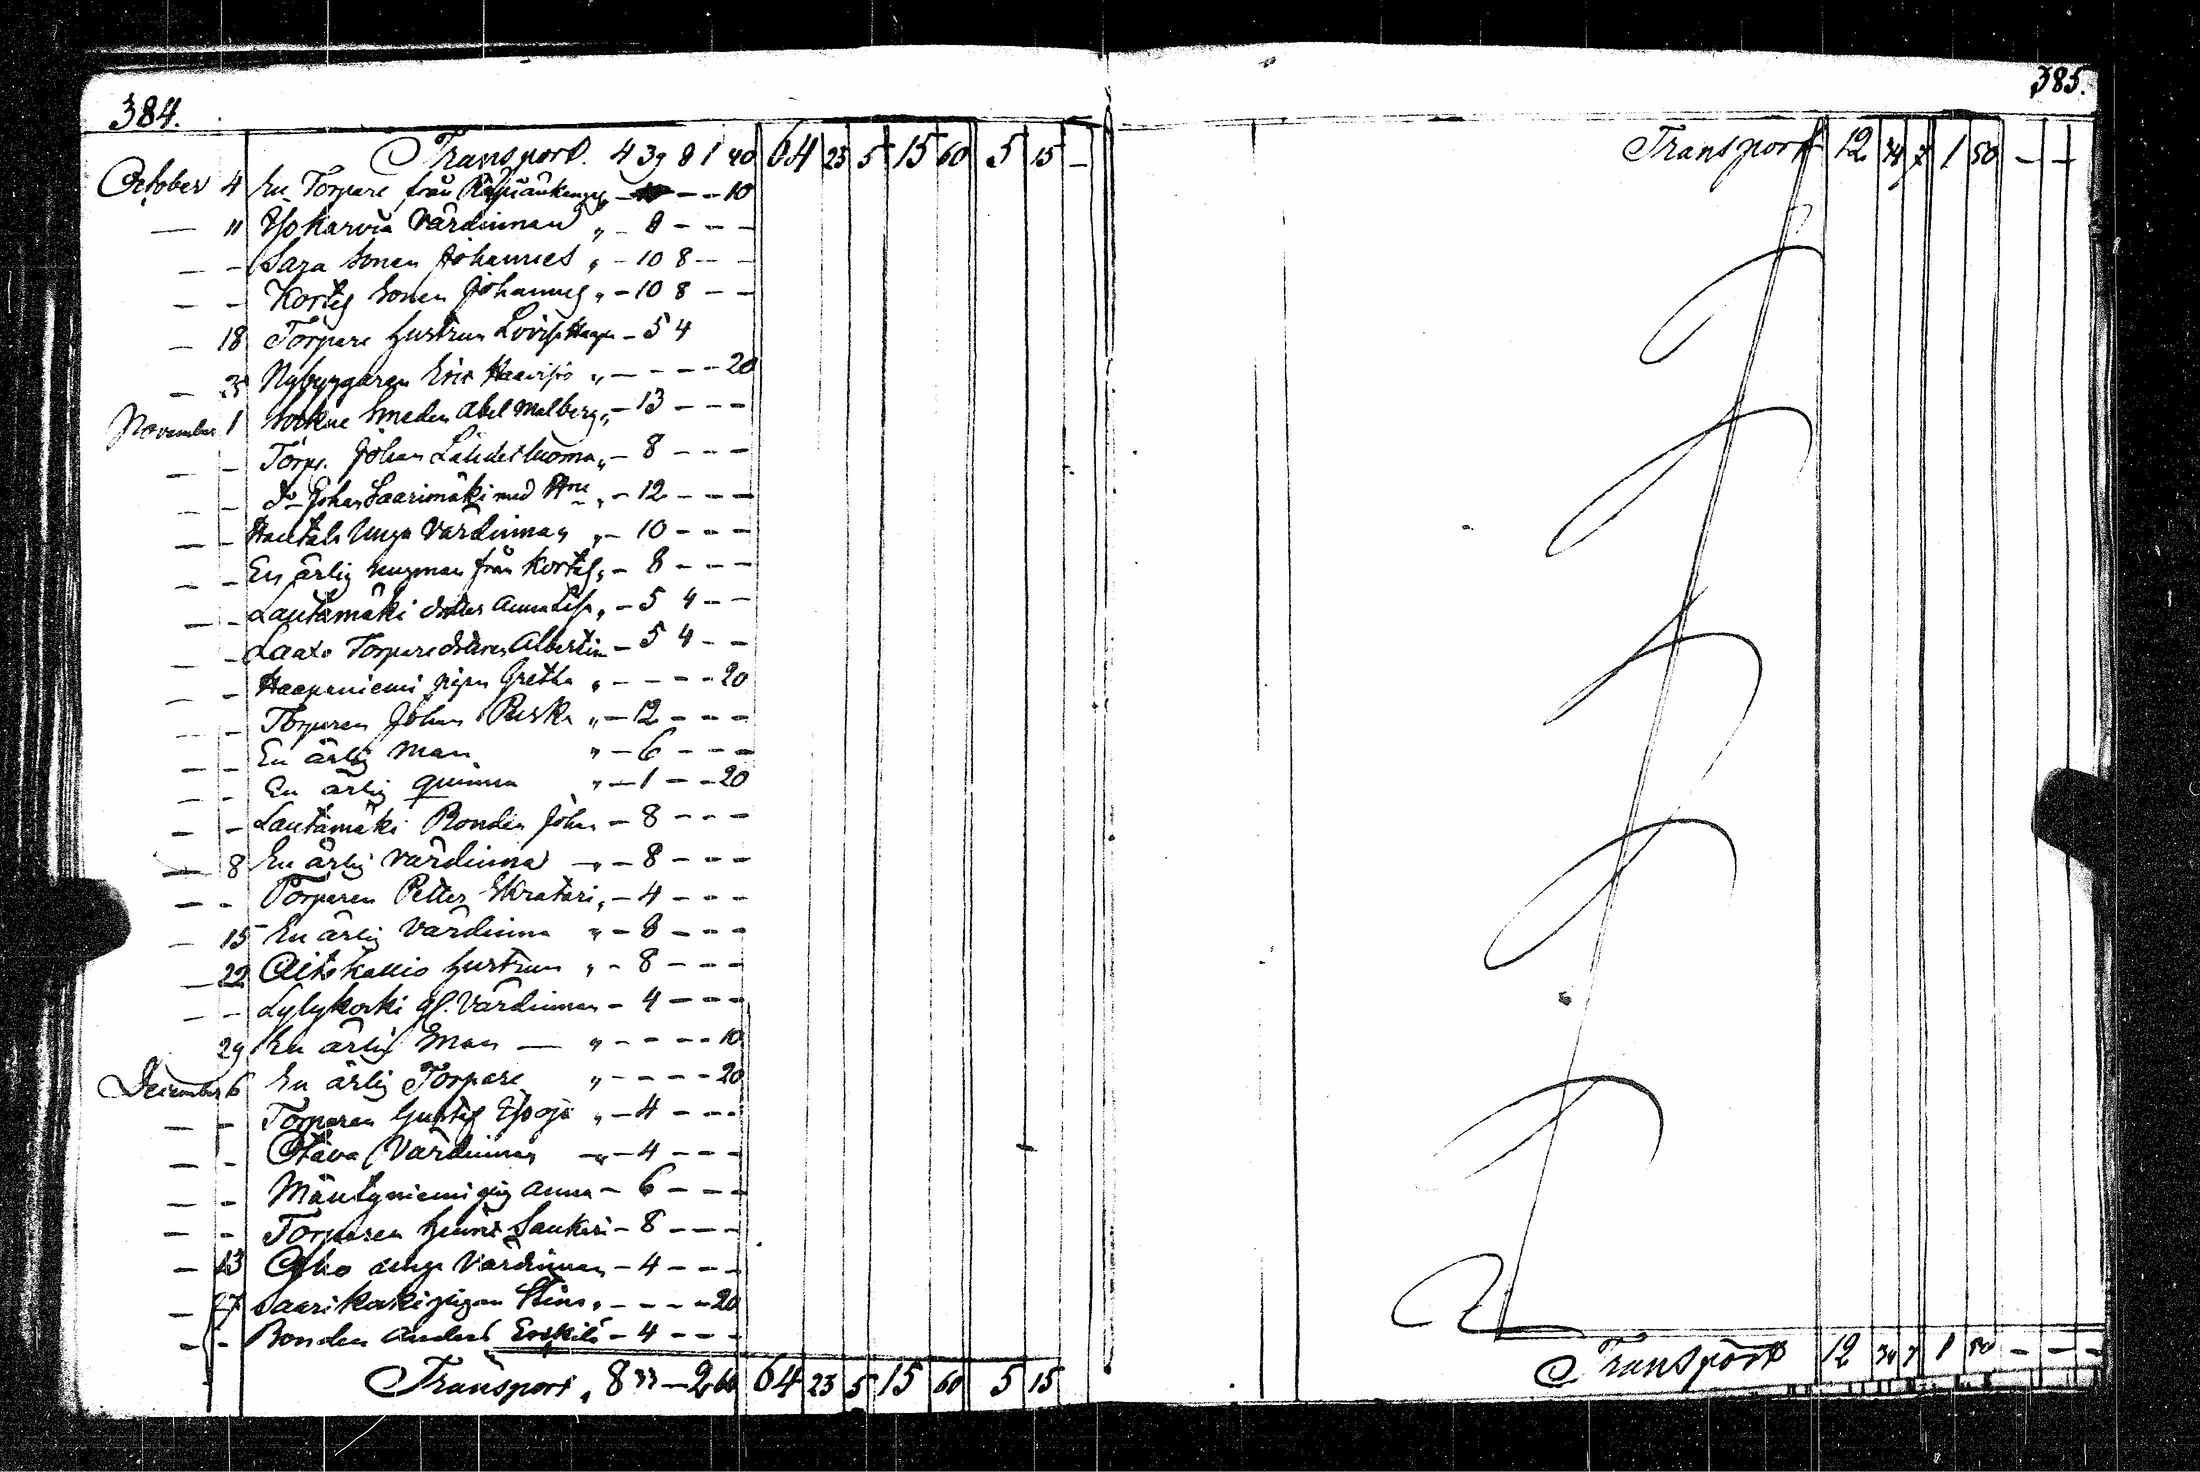 384.
Transport. 4 39 8 1 40 64 23 5 15 60 5 15 –
October 4 En Torpare från – – – 10
— 11 Värdinnan „ – 8 – – –
— – Sara Sonen Johannes „ – 10 8 – –
— – Sonen Johannes „ – 10 8 – –
— 18 Torpare hustrun Lovisa – 5 4
— 25 Nybyggaren Eric „ – – – – 20
November 1 Sockne Smeden Abel Malberg „ – 13 – – –
— – Torp. Johan „ – 8 – – –
— – Do Johan Saarimäki med „ – 12 – – –
— – Hautala Unga Värdinnan „ – 10 – – –
— – En ärlig från „ – 8 – – –
— – Lautamäki dotter Anna Lisa „ – 5 4 – –
— – Torpare Albertin – 5 4 – –
— – Haapaniemi pigan Gretha „ – – – – 20
— – Torparen Johan „ – 12 – – –
— – En ärlig Man „ – 6 – – –
— – En ärlig quinna „ – 1 – – 20
— – Lautamäki Bonden Johan – 8 – – –
— 8 En ärlig värdinna – „ – 8 – – –
— – Torparen Petter „ – 4 – – –
— 15 En ärlig Värdinna „ – 8 – – –
— 22 Aitokallio hustrun „ – 8 – – –
— – Lylykoski gl. Värdinnan – 4 – – –
29 En ärlig Man — „ – – – – 10
December 6 En ärlig Torpare „ – – – – 20
— – Torparen Gustaf „ – 4 – – –
— – Otava Värdinnan – „ – 4 – – –
— – Mäntyniemi pig Anna – 6 – – –
— – Torparen – 8 – – –
— 13 Aho unga Värdinnan – 4 – – –
— 27 Saarikoski pigan Stina „ – – – – 20
— – Bonden Anders Eskilä – 4 – – –
Transport „ 8 33 – 2 60 64 23 5 15 60 5 15
385.
Transport 12 34 7 1 50 – –
Transport 12 34 7 1 50 – – –